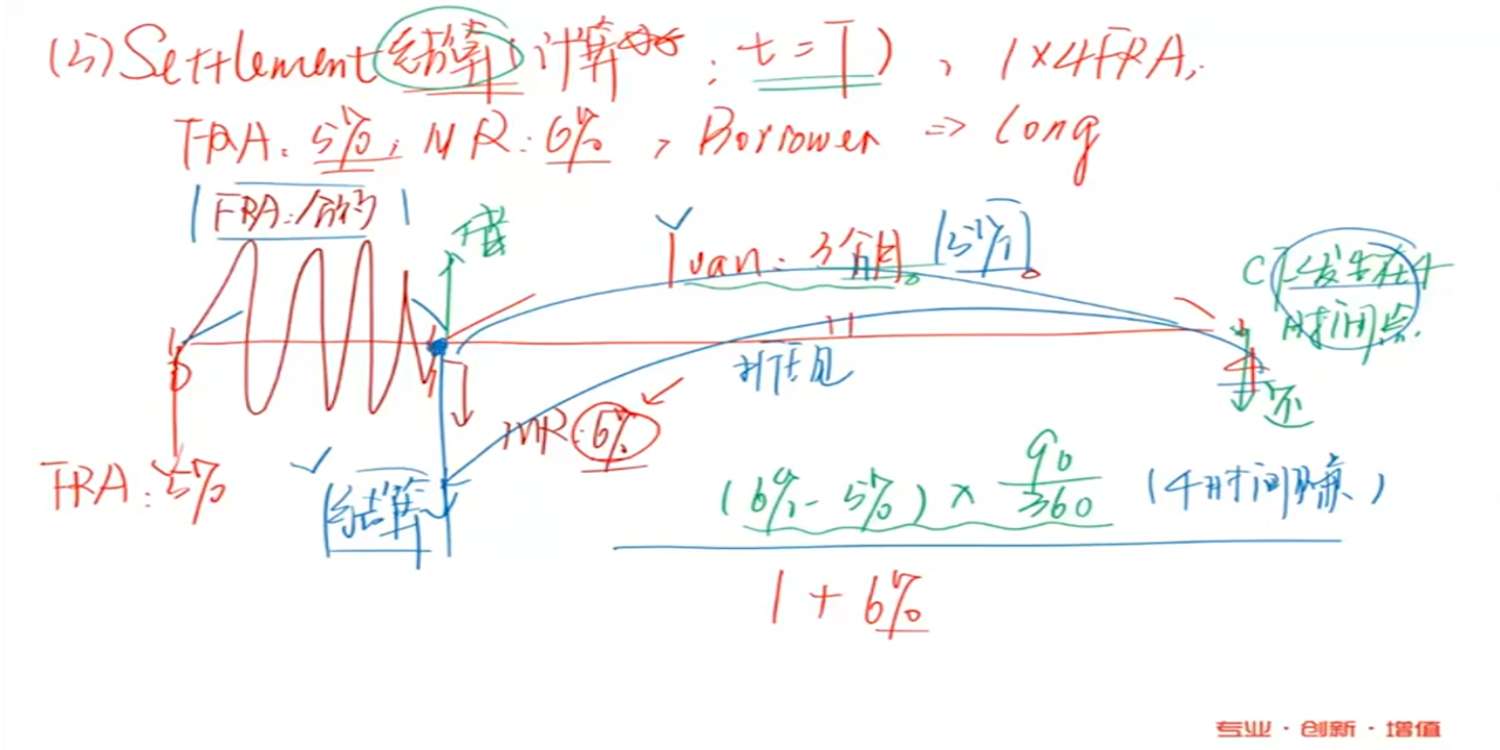 (5) Settlement 结算 (计算 ; t = T) , 1×4 FRA.
FRA: 5%, MR: 6% , Borrower ⇒ long
FRA: 1个月
借
loan: 3个月 (5%)
发生在4
时间点.
0
折
MR: 6%
还
FRA: 5%
结算
(6% - 5%) × 90/360 (4时间赚)
1 + 6%
专业 · 创新 · 增值